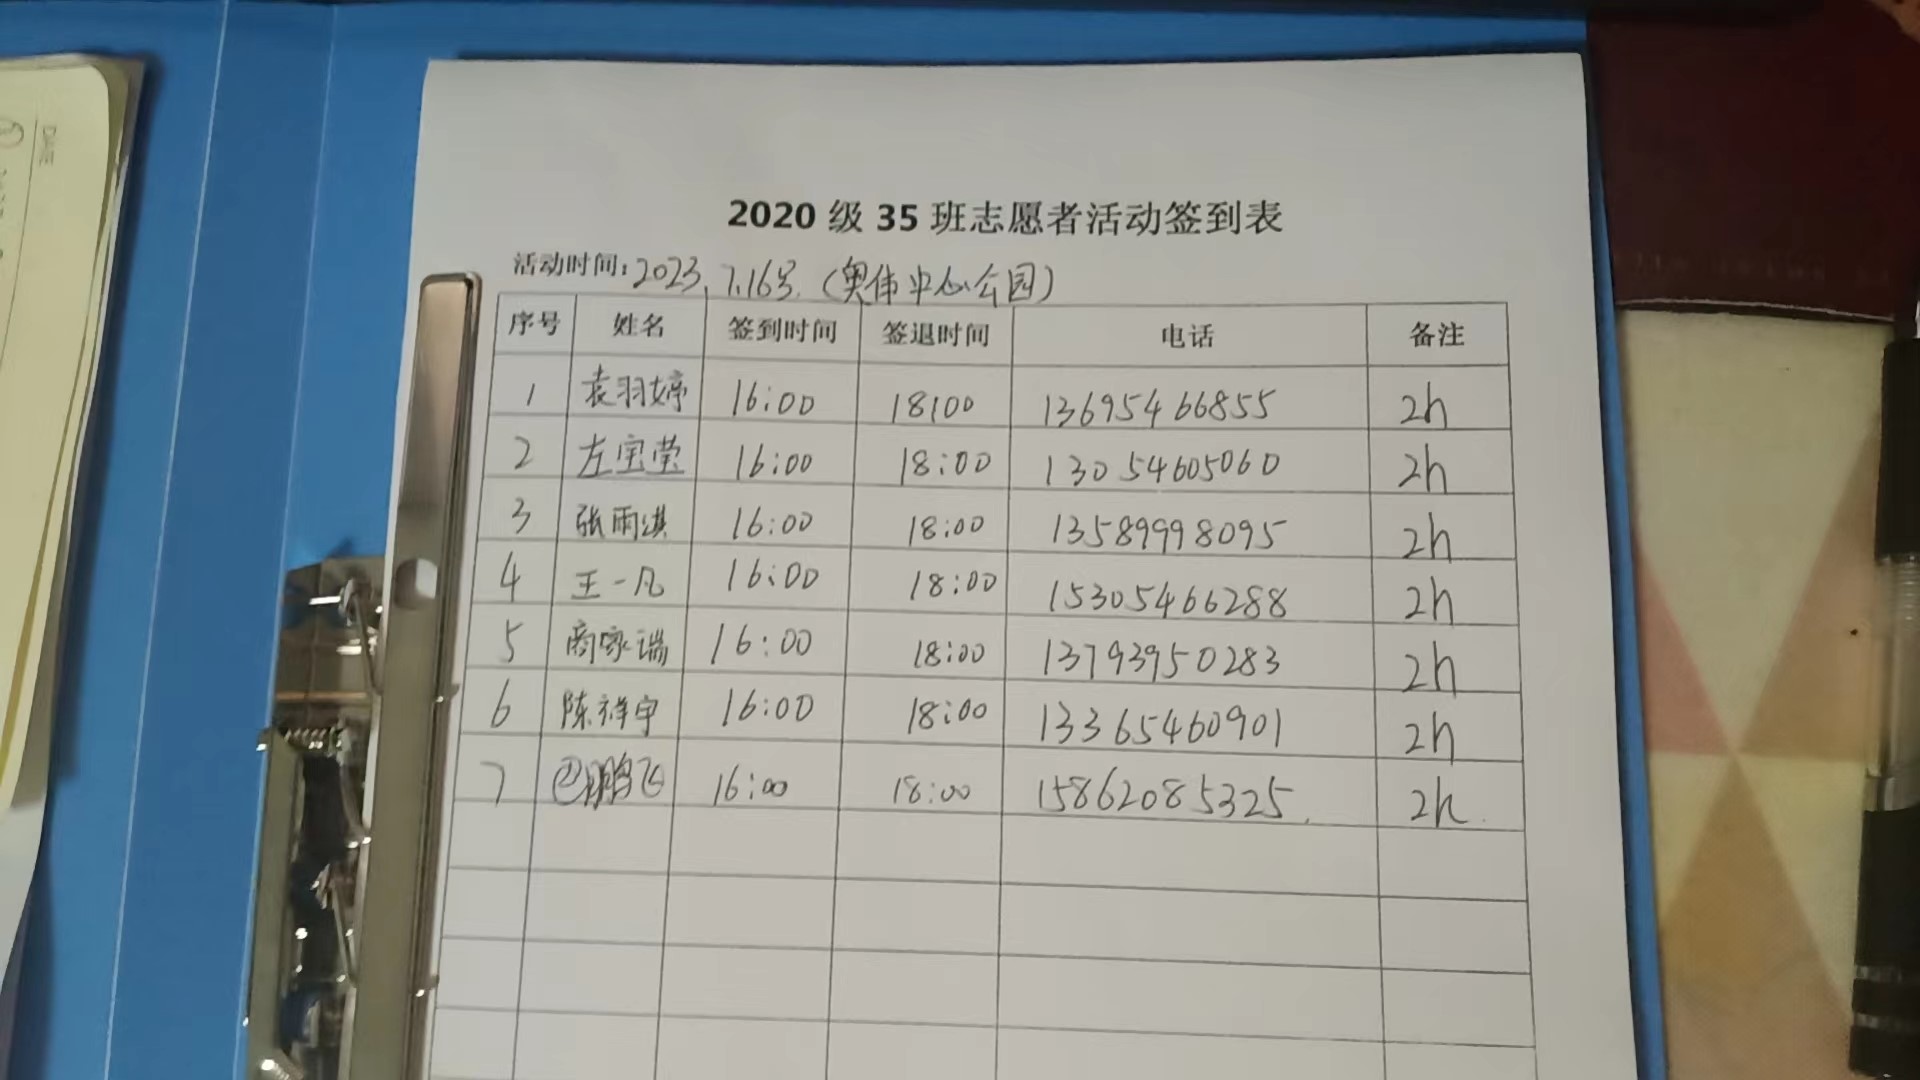 DATE
2020 级 35 班志愿者活动签到表
活动时间：2023.7.16号.（奥体中心公园）
序号 姓名 签到时间 签退时间 电话 备注
1 袁羽婷 16:00 18:00 13695466855 2h
2 左宝莹 16:00 18:00 13054605060 2h
3 张雨淇 16:00 18:00 13589998095 2h
4 王一凡 16:00 18:00 15305466288 2h
5 商家瑞 16:00 18:00 13793950283 2h
6 陈祥宇 16:00 18:00 13365460901 2h
7 巴鹏飞 16:00 18:00 15862085325. 2h.